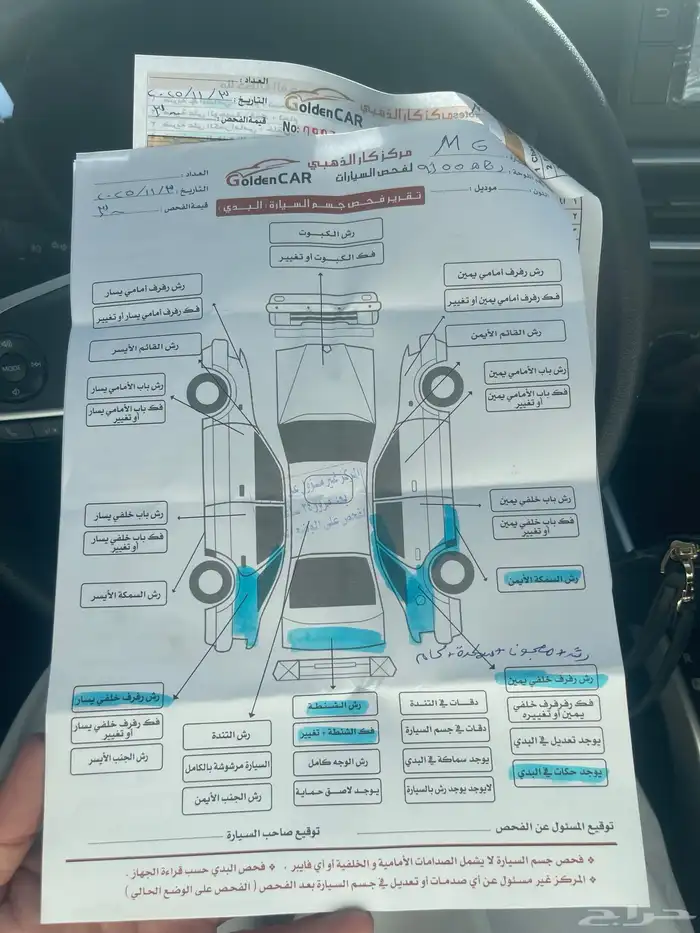 العداد :
التاريخ : ٢٠٢٥/١١/٣
قيمة الفحص : ٣٠٠
GoldenCAR
مركز كار الذهبي
No:
العداد :
التاريخ : ٢٠٢٥/١١/٣
قيمة الفحص : ٣٠٠
GoldenCAR
مركز كار الذهبي
لفحص السيارات
MG
موديل :
تقرير فحص جسم السيارة : البدي :
رش الكبوت
فك الكبوت أو تغيير
رش رفرف أمامي يسار
فك رفرف أمامي يسار أو تغيير
رش القائم الأيسر
رش باب الأمامي يسار
فك باب الأمامي يسار أو تغيير
رش رفرف أمامي يمين
فك رفرف أمامي يمين أو تغيير
رش القائم الأيمن
رش باب الأمامي يمين
فك باب الأمامي يمين أو تغيير
المركز غير مسؤول
رش باب خلفي يسار
فك باب خلفي يسار أو تغيير
رش السمكة الأيسر
رش باب خلفي يمين
فك باب خلفي يمين أو تغيير
رش السمكة الأيمن
رش رفرف خلفي يمين
فك رفرفرف خلفي يمين أو تغييره
يوجد تعديل في البدي
يوجد حكات في البدي
دقات في التندة
دقات في جسم السيارة
يوجد سماكة في البدي
لايوجد يوجد رش بالسيارة
رش الشنطة
فك الشنطة + تغيير
رش الوجه كامل
يوجد لاصق حماية
رش التندة
السيارة مرشوشة بالكامل
رش الجنب الأيمن
رش رفرف خلفي يسار
فك رفرف خلفي يسار أو تغيير
رش الجنب الأيسر
توقيع المسئول عن الفحص
توقيع صاحب السيارة
فحص جسم السيارة لا يشمل الصدامات الأمامية و الخلفية أو أي فايبر .
فحص البدي حسب قراءة الجهاز .
المركز غير مسئول عن أي صدمات أو تعديل في جسم السيارة بعد الفحص ( الفحص على الوضع الحالي )
MODE
حراج